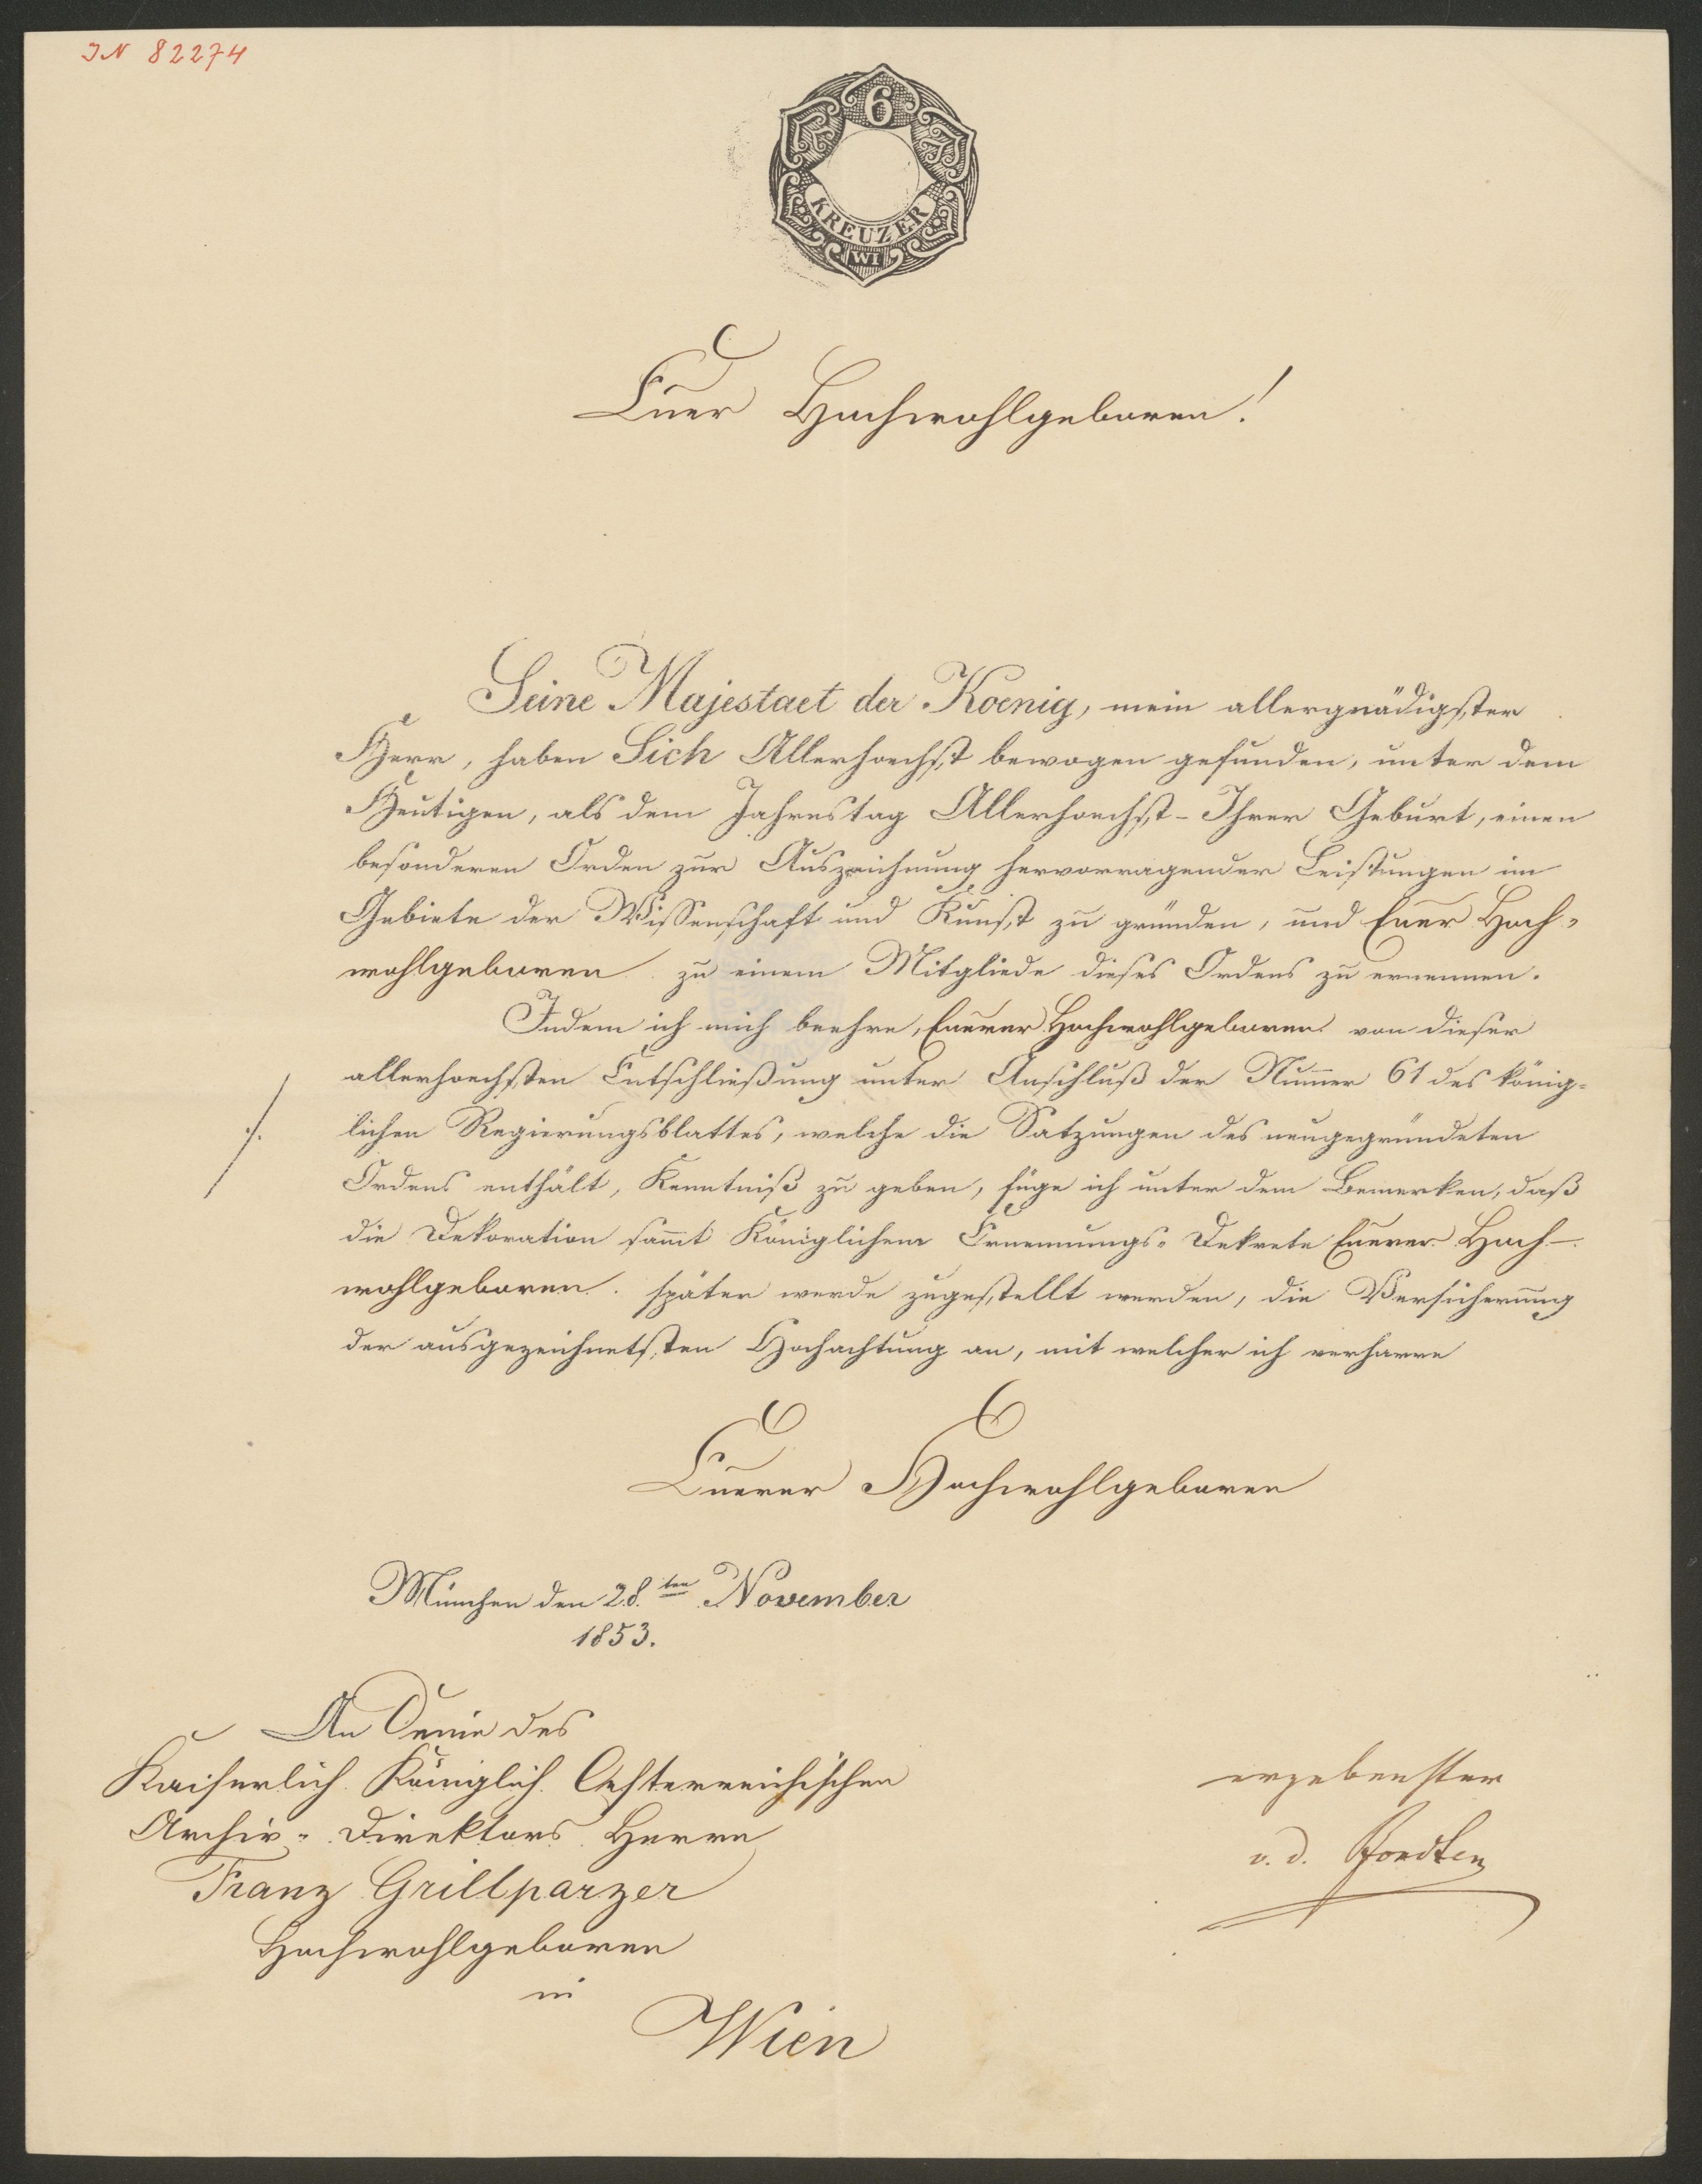 IN 82274
6
KREUZER
WI
Euer Hochwohlgeboren!
Seine Majestaet der Koenig, mein allergnädigster
Herr, haben Sich Allerhoechst bewogen gefunden, unter dem
Heutigen, als dem Jahrestag Allerhoechst-Ihrer Geburt, einen
besonderen Orden zur Auszeichnung hervorragender Leistungen im
Gebiete der Wissenschaft und Kunst zu gründen, und Euer Hoch-
wohlgeboren zu einem Mitgliede dieses Ordens zu ernennen.
Indem ich mich beehre, Euerer Hochwohlgeboren von dieser
allerhoechsten Entschließung unter Anschluß der Num̄er 61 des könig-
./. lichen Regierungsblattes, welche die Satzungen des neugegründeten
Ordens enthält, Kenntniß zu geben, füge ich unter dem Bemerken, daß
die Dekoration sam̄t Königlichem Ernennungs-Dekrete Euerer Hoch-
wohlgeboren später werde zugestellt werden, die Versicherung
der ausgezeichnetsten Hochachtung an, mit welcher ich verharre
Euerer Hochwohlgeboren
München den 28.ten November
1853.
An des
Kaiserlich Königlich Oesterreichischen
Archiv-Direktors Herrn
Franz Grillparzer
Hochwohlgeboren
in
Wien
ergebenster
v. d. Pfordten